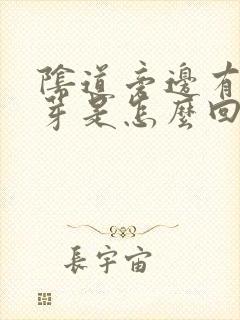 陰道旁邊有
芽是怎麼回
長宇宙